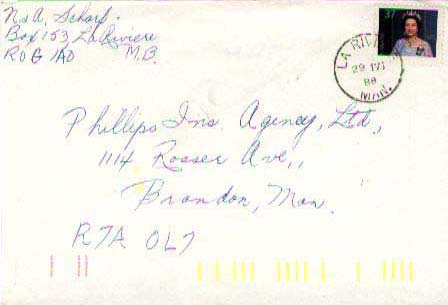 N & A. Scharf.
Box 153 La Riviere
R0G 1A0 M.B.
37
LA RIVIERE
29 IVI
88
MAN.
Phillips Ins. Agency, Ltd.,
1114 Rosser Ave.,
Brandon, Man.
R7A 0L7